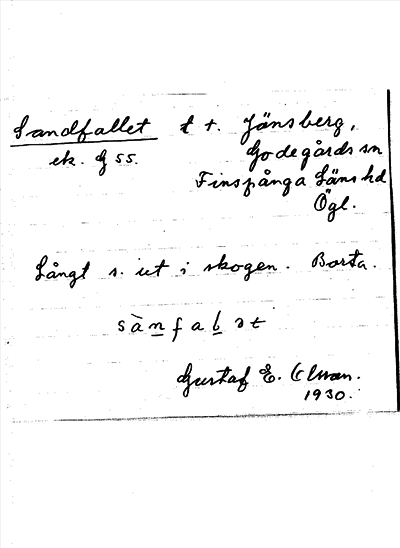 Sandfallet t t. Jänsberg,
ek. G 55. Godegårds sn
Finspånga Läns hd
Ögl.
Långt s. ut i skogen. Borta.
sànfabət
Gustaf E. Clman.
1930.